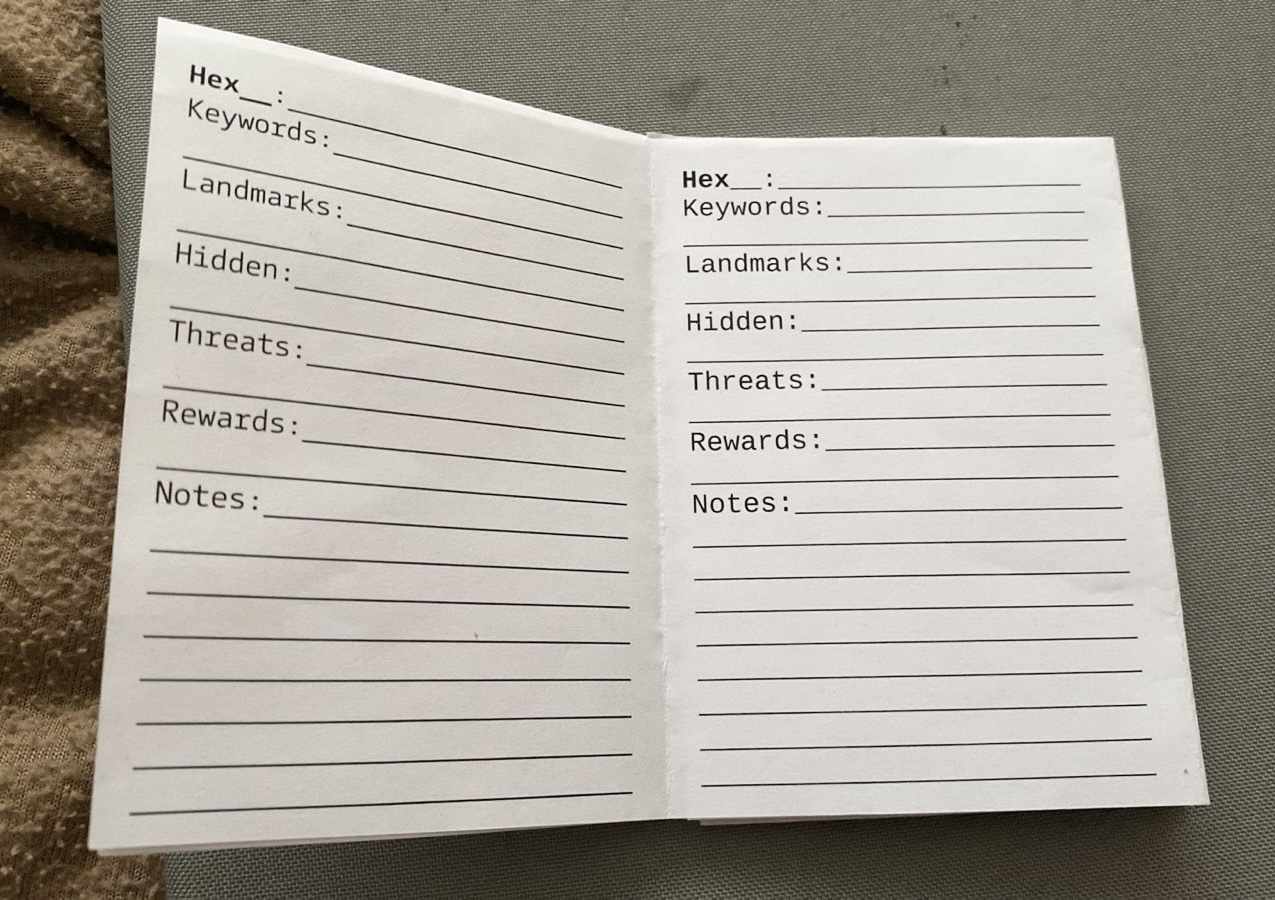 Hex__:
Keywords:
Landmarks:
Hidden:
Threats:
Rewards:
Notes:
Hex__:
Keywords:
Landmarks:
Hidden:
Threats:
Rewards:
Notes: